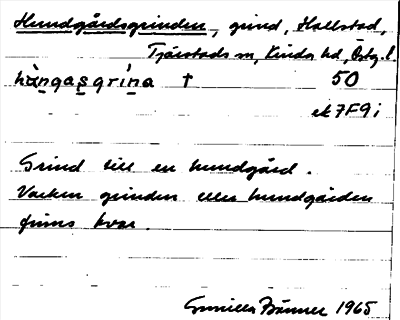 Hundgårdsgrinden, grind, Hallstad,
Tjärstads sn, Kinda hd, Östg. l.
hùngas̱gríṉa † 50
ek 7F9i
Grind till en hundgård.
Varken grinden eller hundgården
finns kvar.
Gunilla Bönner 1965